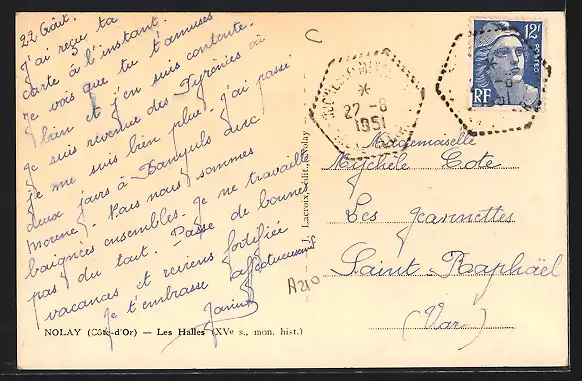 22 Août.
J'ai reçu ta
carte à l'instant.
Je vois que tu t'amuses
bien et j'en suis contente.
Je suis revenue des Pyrénées où
je me suis bien plue. J'ai passé
deux jours à Banyuls avec
Morene. Nous nous sommes
baignées ensembles. Je ne travaille
pas du tout. Passe de bonnes
vacances et reviens fortifiée
Je t'embrasse affectueusement
Janine
A210
NOLAY (Côte-d'Or) — Les Halles (XVe s., mon. hist.)
J. Lacroix, édit., Nolay
C
22-8
1951
12F
POSTES
RF
Mademoiselle
Mychèle Cote
Les Jeannettes
Saint Raphaël
(Var)